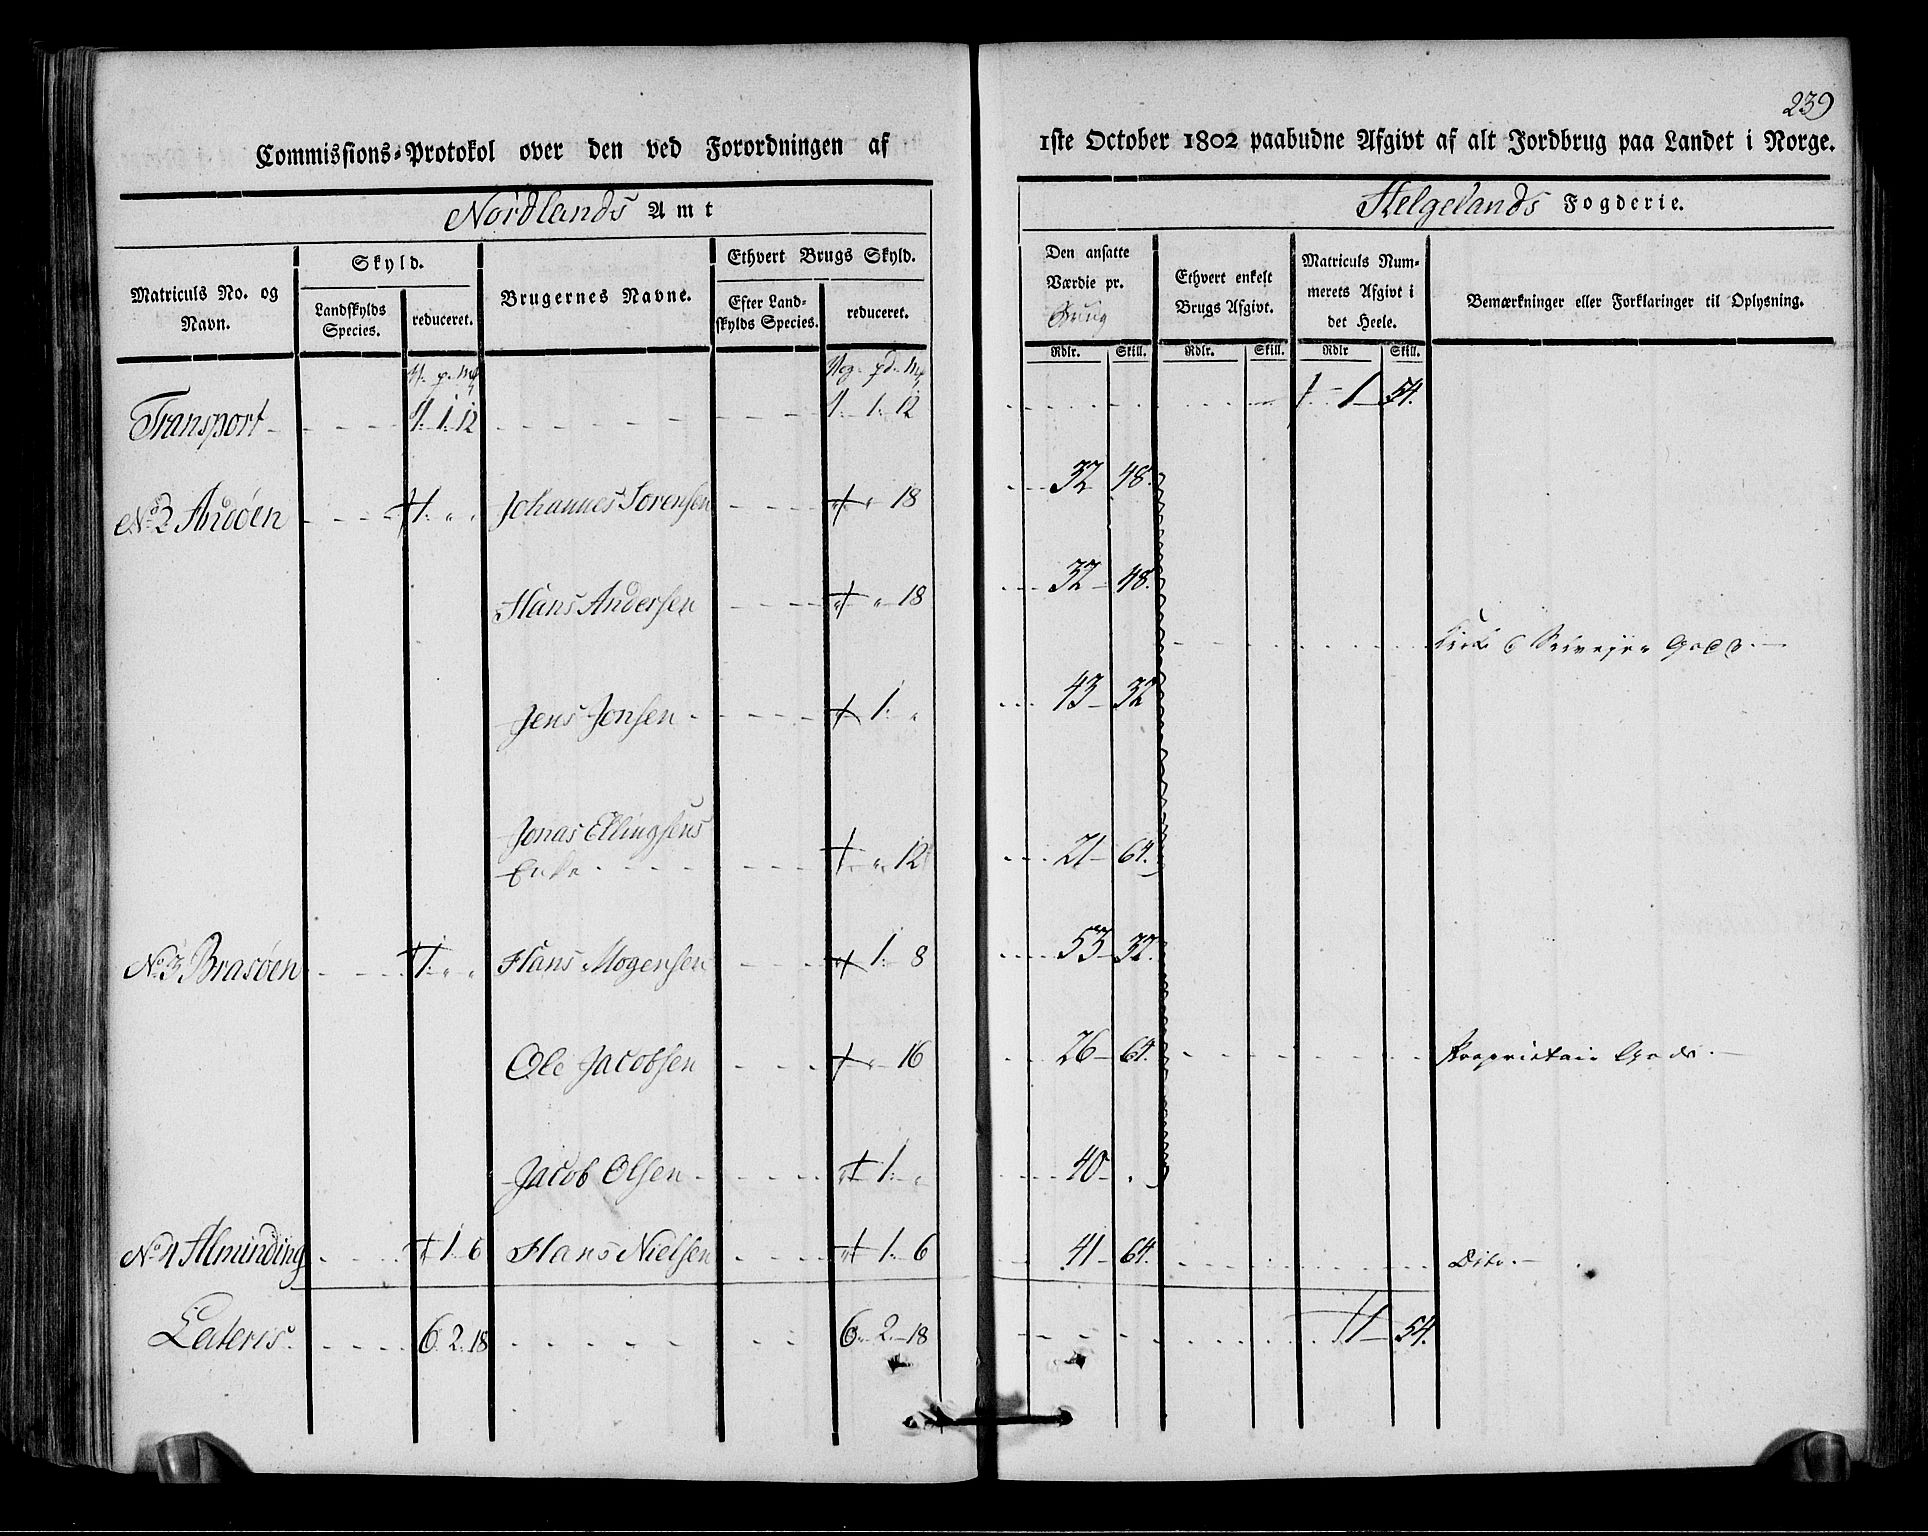 239
Commissions-Protokol over den ved Forordningen af 1ste October 1802 paabudne Afgivt af alt Jordbrug paa Landet i Norge.
Nordlands Amt
Helgelands Fogderie.
Matriculs No. og Navn.
Skyld.
Landskylds Species.
reduceret.
Brugernes Navne.
Ethvert Brugs Skyld.
Efter Landskylds Species.
reduceret.
Den ansatte Værdie pr.
Ethvert enkelt Brugs Afgivt.
Matriculs Nummerets Afgivt i det Heele.
Bemærkninger eller Forklaringer til Oplysning.
Rdlr. Skill. Rdlr. Skill. Rdlr Skill.
Transport 4. 1. 12 4. 1. 12 1 54.
No 2 Andøen 1. " " Johannes Sorensen " 18 32 48.
Hans Andersen " 18 32 48.
Selvejer Gods.
Jens Jonsen 1. " 43 32
Jonas Ellingsens
Enke " 12 21 64.
No 3 Brasøen 1. " " Hans Mogensen 1. 8 53 32.
Ole Jacobsen " 16 26 64. Proprietair Gods.
Jacob Olsen 1. " 40 "
No 4 Alminding 1. 6 Hans Nielsen 1. 6 41 64. Dito.
Lateris 6. 2. 18 6. 2. 18 1 54.